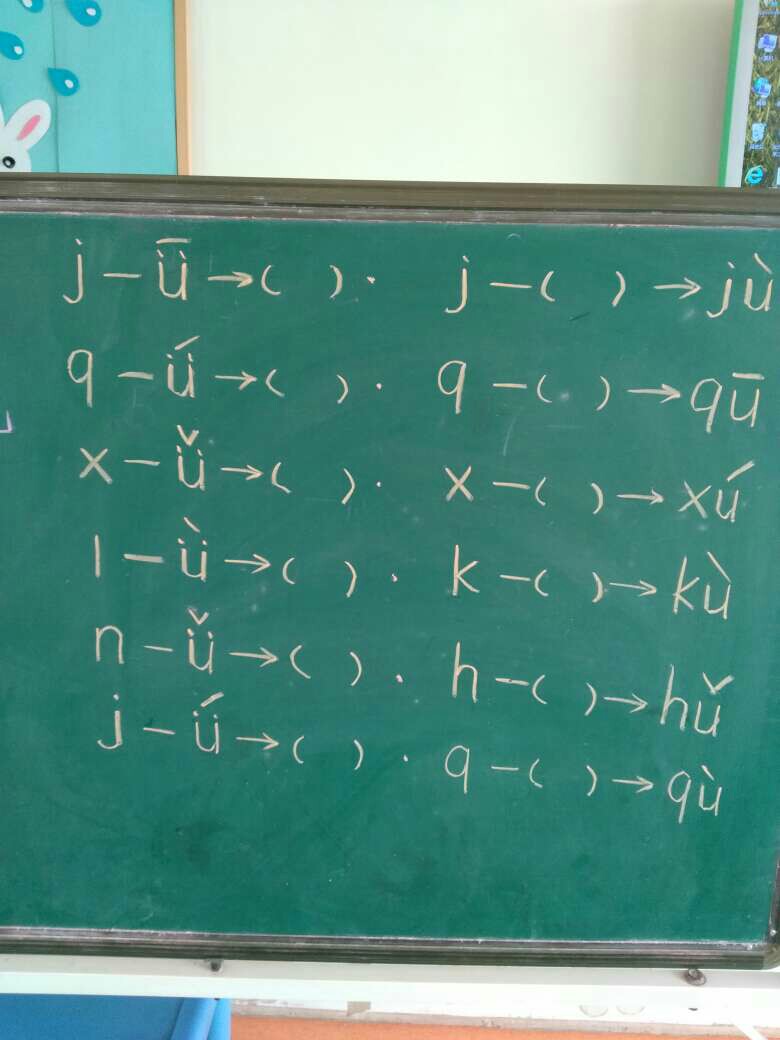 j – ǖ → (  ) . j – (  ) → jù
q – ǘ → (  ) . q – (  ) → qū
x – ǚ → (  ) . x – (  ) → xú
l – ǜ → (  ) . k – (  ) → kù
n – ǚ → (  ) . h – (  ) → hǔ
j – ǘ → (  ) . q – (  ) → qù